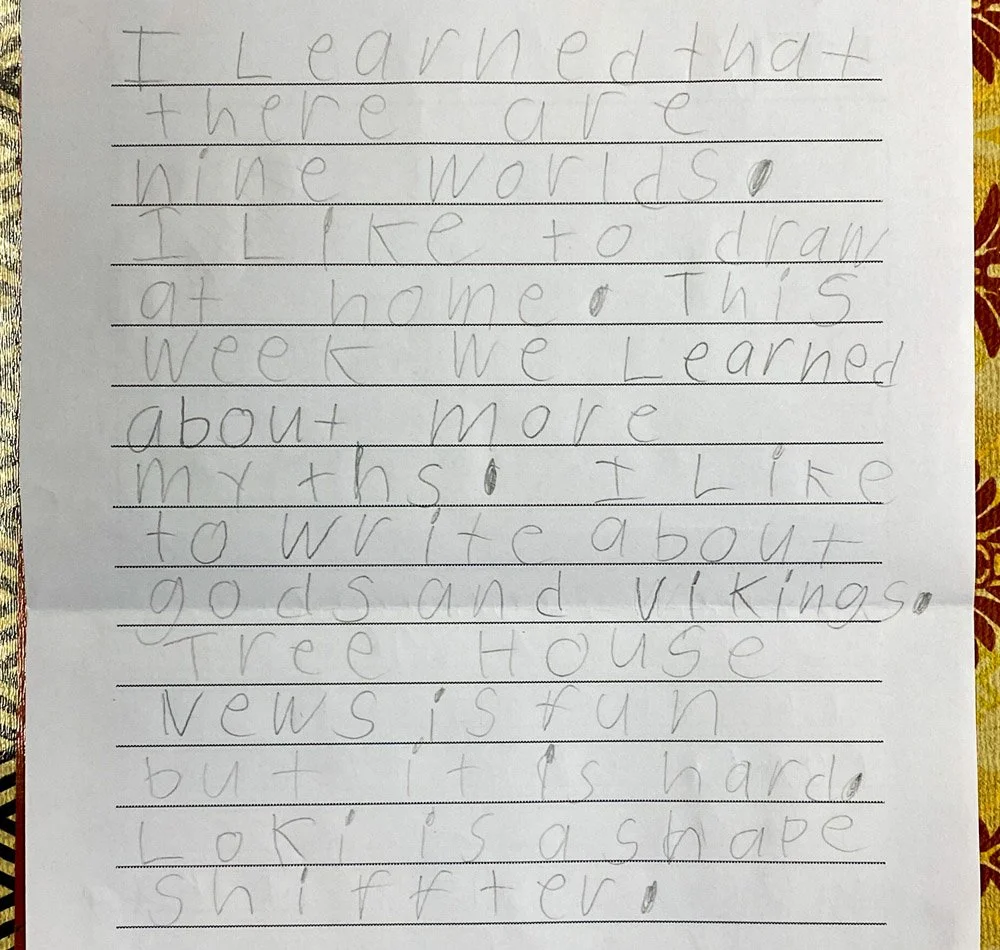 I Learned that
there are
nine worlds.
I Like to draw
at home. This
week we Learned
about more
myths. I Like
to write about
gods and vikings.
Tree House
News is fun
but it is hard.
Loki is a shape
shiffter.